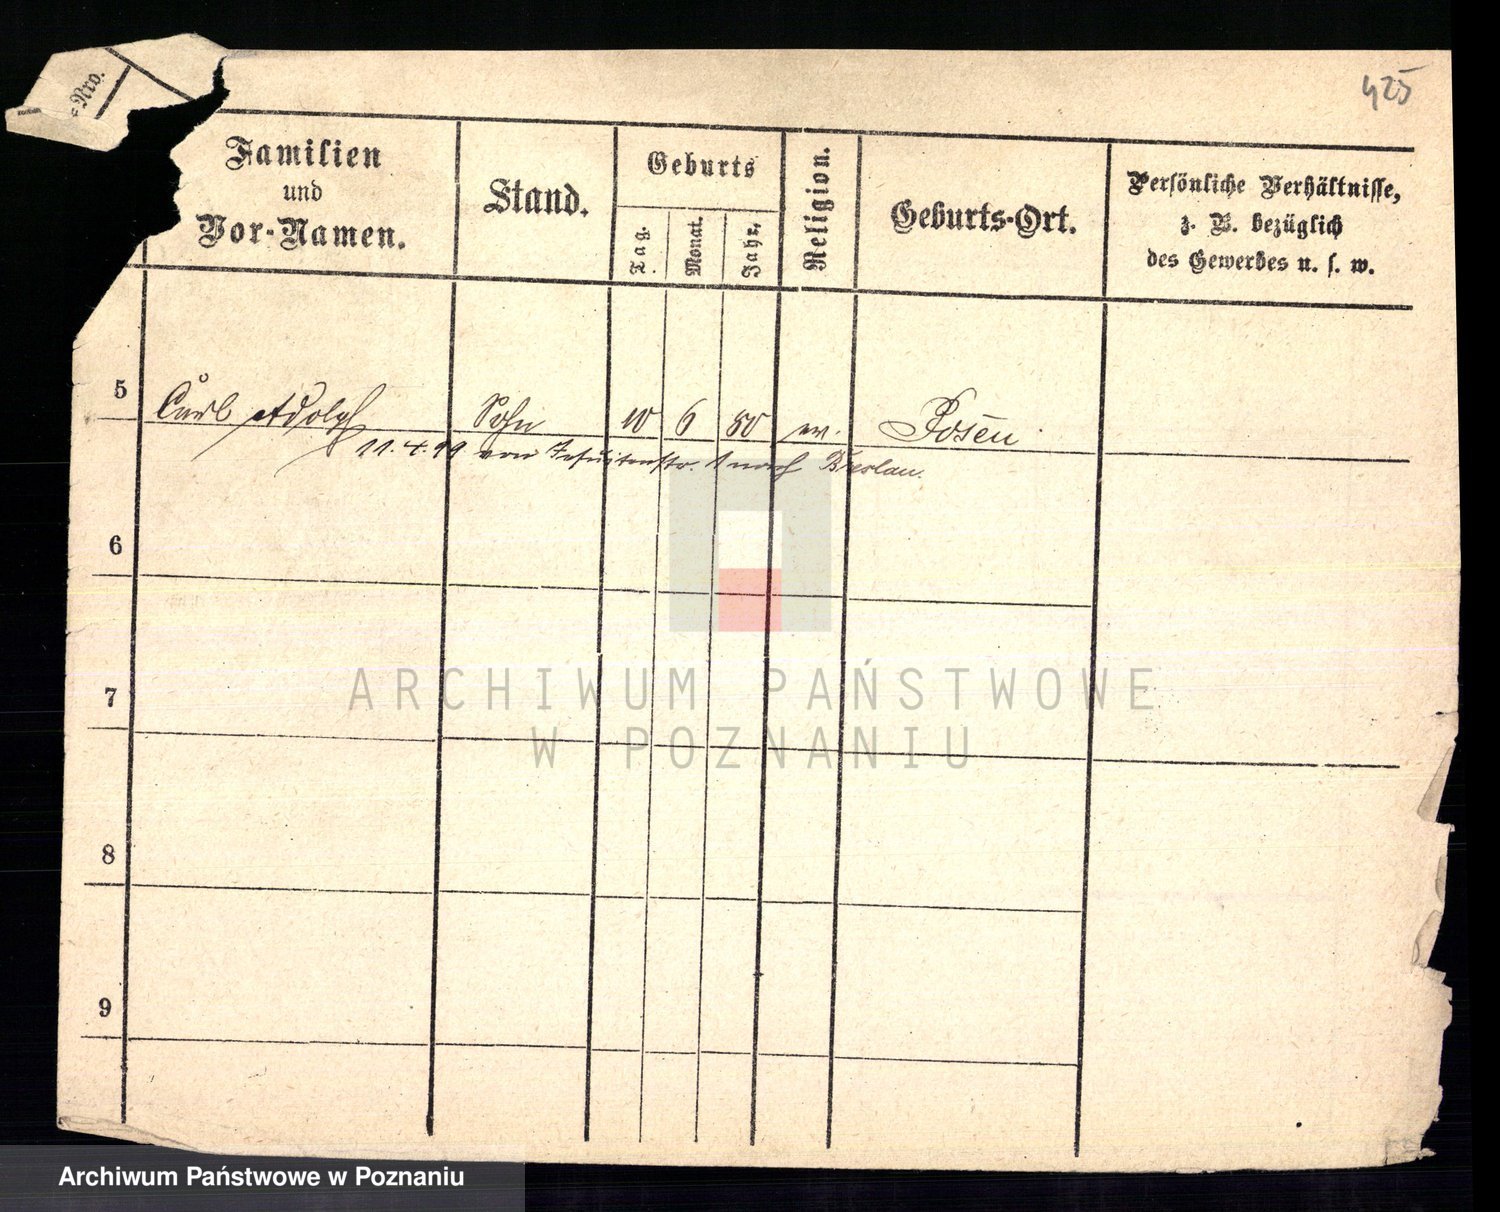 425
Nro.
Familien
und
Vor-Namen.
Stand.
Geburts
Tag.
Monat.
Jahr.
Religion.
Geburts-Ort.
Persönliche Verhältnisse,
z. B. bezüglich
des Gewerbes u. s. w.
5 Carl Adolph Sohn 10 6 80 ev. Posen
11.4.99 von Jesuitenstr. 1 nach Breslau.
6
7
8
9
ARCHIWUM PAŃSTWOWE
W POZNANIU
Archiwum Państwowe w Poznaniu